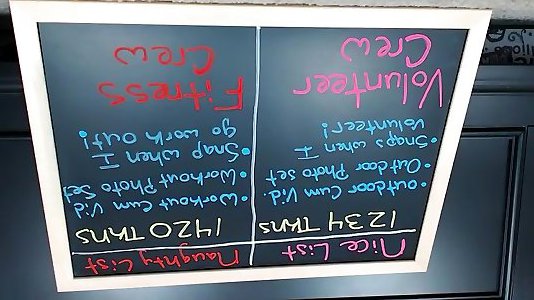 Nice List
1234 Tkns
• Outdoor Cum Vid.
• Outdoor Photo Set
• Snaps when I
Volunteer!
Volunteer
Crew
Naughty List
1420 Tkns
• Workout Cum Vid
• Workout Photo Set
• Snap when I
go work out!
Fitness
Crew